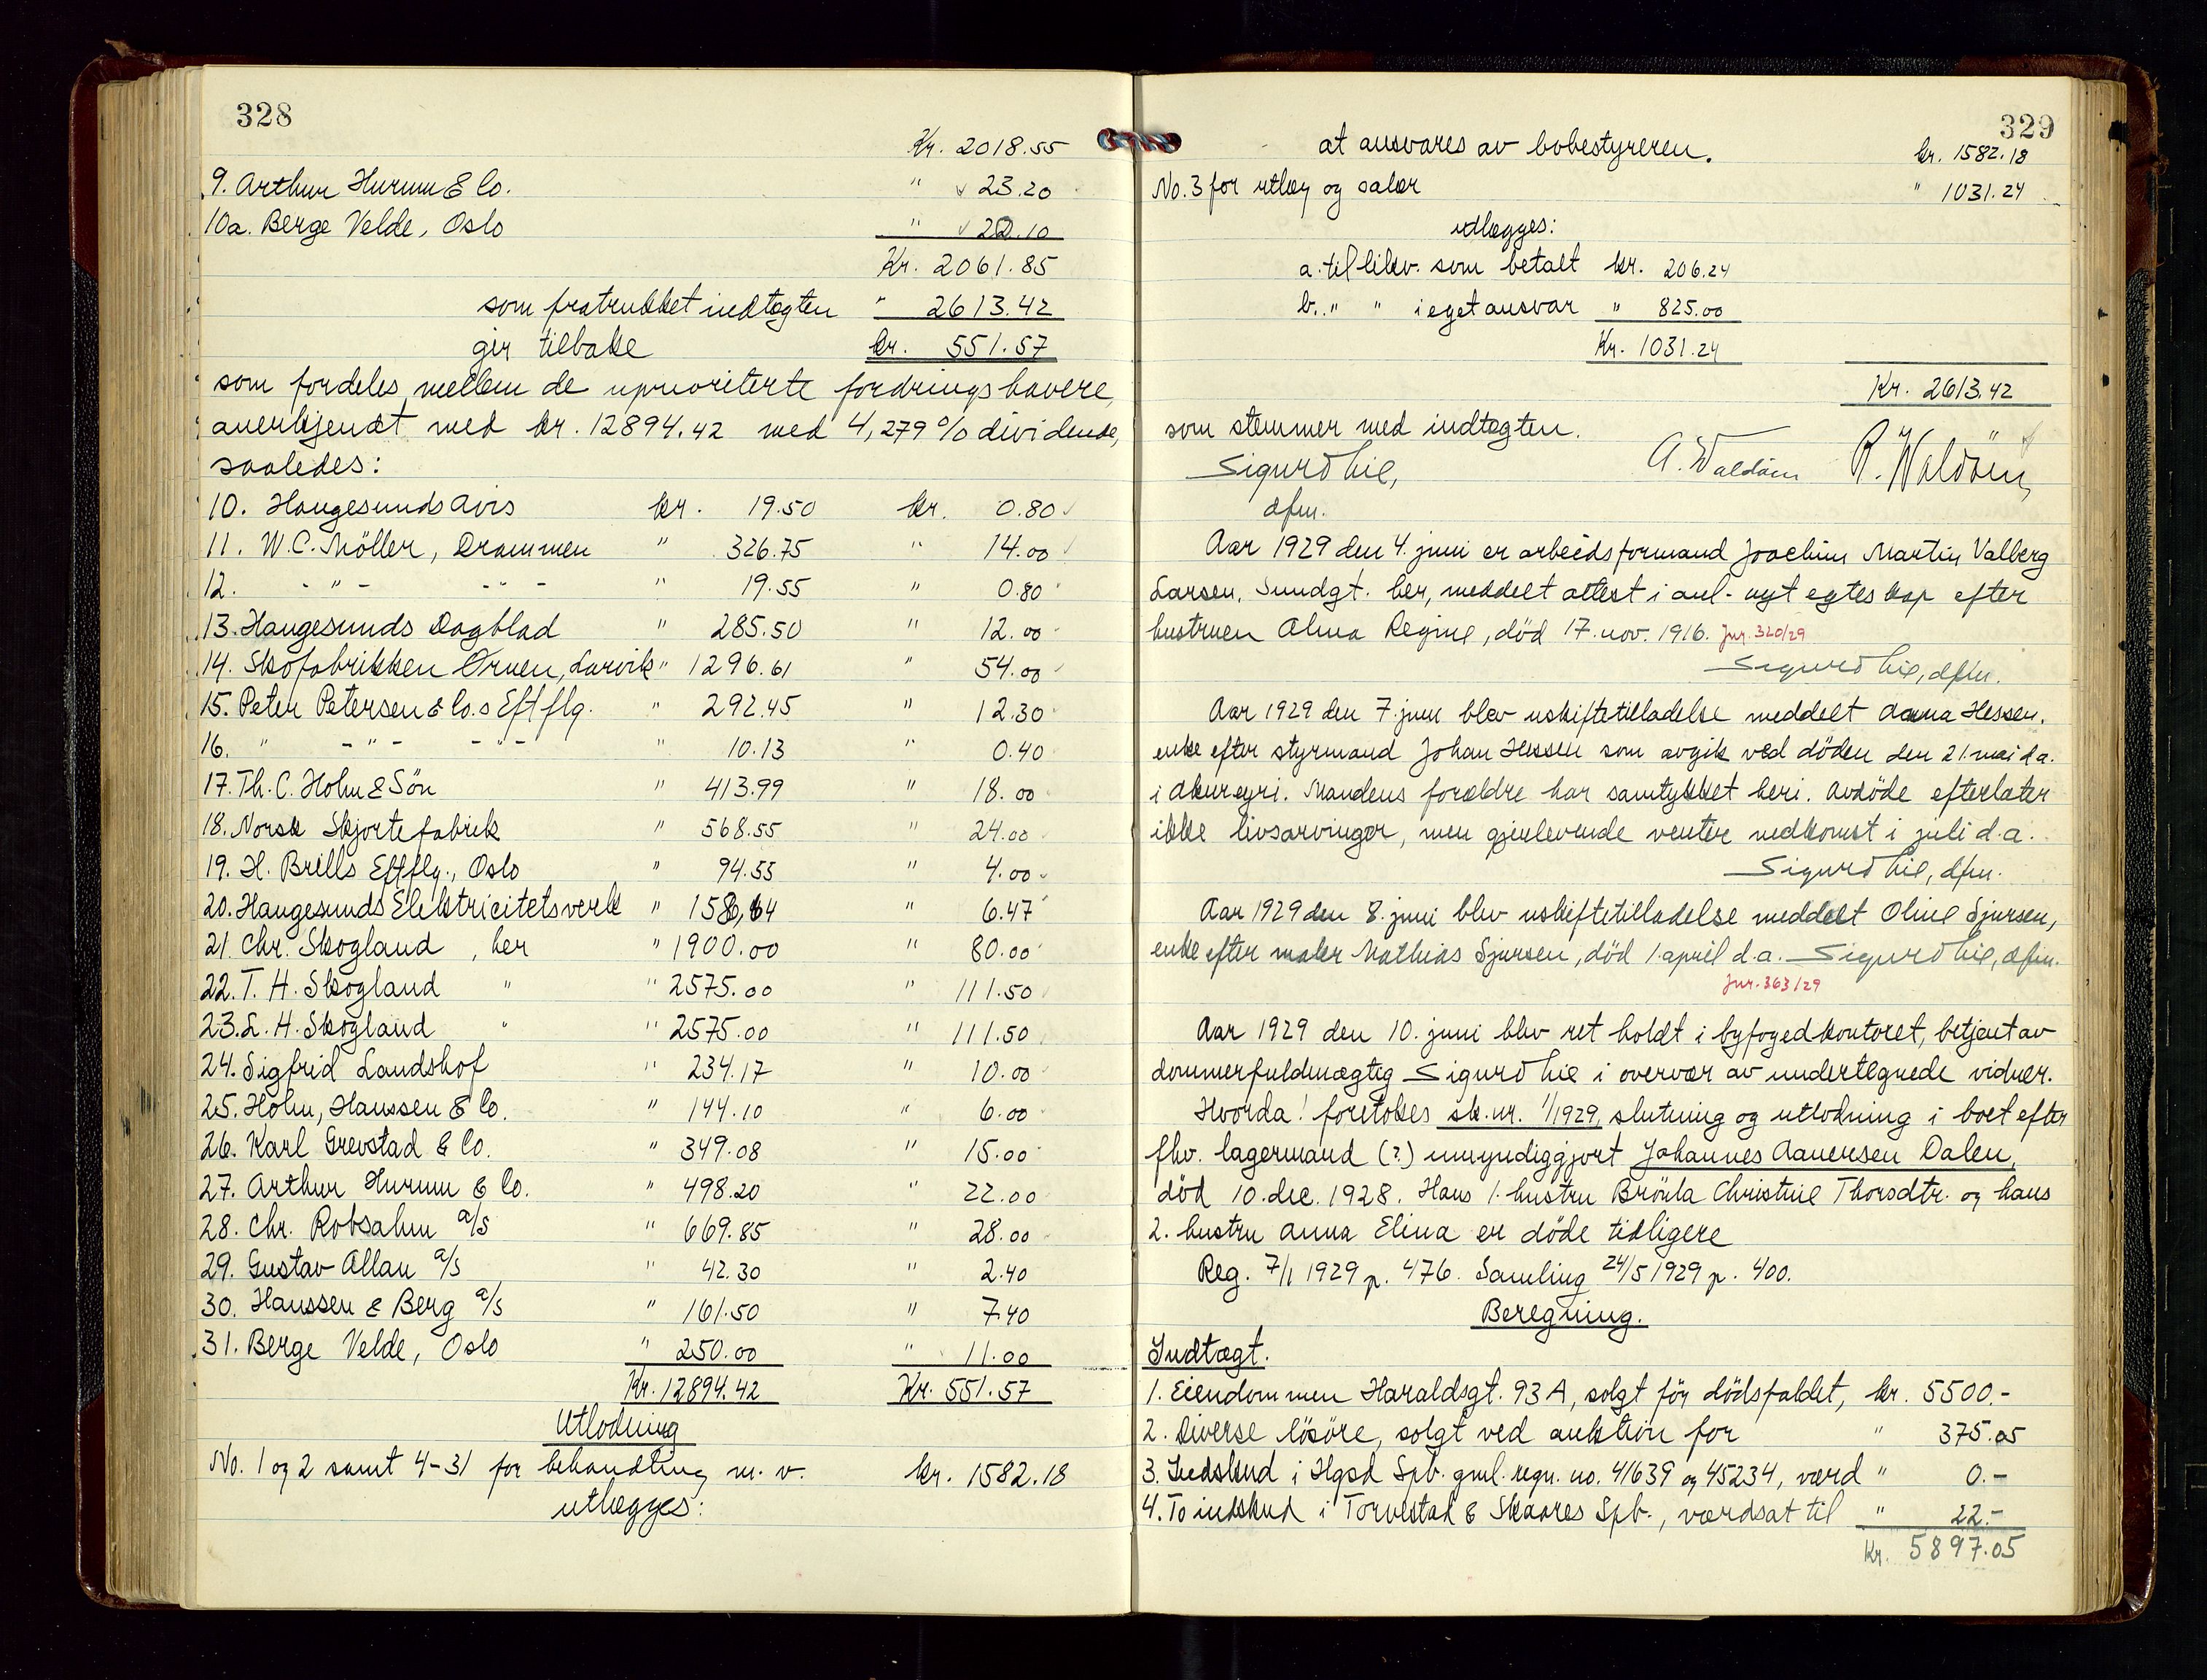 328
Kr. 2018.55
9. Arthur Hurum & Co. " 23.20
10a. Berge Velde, Oslo " 20.10
Kr. 2061.85
som fratrukket indtægten " 2613.42
gir tilbake kr. 551.57
som fordeles mellem de upriorterte fordringshavere,
anerkjendt med kr. 12894.42 med 4,279 % dividende,
saaledes:
10. Haugesunds Avis kr. 19.50 kr. 0.80
11. W.C. Möller, Drammen " 326.75 " 14.00
12. - " - - " - " 19.55 " 0.80
13. Haugesunds Dagblad " 285.50 " 12.00
14. Skofabrikken Ørnen, Larvik " 1296.61 " 54.00
15. Peter Petersen & Co.s Eftflg. " 292.45 " 12.30
16. " - " - - " - " 10.13 " 0.40
17. Th. C. Holm & Sön " 413.99 " 18.00
18. Norsk Skjortefabrik " 568.55 " 24.00
19. H. Brills Eftflg., Oslo " 94.55 " 4.00
20. Haugesunds Elektricitetsverk " 156,64 " 6.47
21. Chr. Skogland, her " 1900.00 " 80.00
22. T. H. Skogland " " 2575.00 " 111.50
23. L. H. Skogland " " 2575.00 " 111.50
24. Sigfrid Landshof " 234.17 " 10.00
25. Holm, Hanssen & Co. " 144.10 " 6.00
26. Karl Grevstad & Co. " 349.08 " 15.00
27. Arthur Hurum & Co. " 498.20 " 22.00
28. Chr. Robsahm a/s " 669.85 " 28.00
29. Gustav Allan a/s " 42.30 " 2.40
30. Hanssen & Berg a/s " 161.50 " 7.40
31. Berge Velde, Oslo " 250.00 " 11.00
Kr. 12894.42 Kr. 551.57
Utlodning
No. 1 og 2 samt 4-31 for behandling m. v. kr. 1582.18
utlægges:
329
at ansvares av bobestyreren. kr. 1582.18
No. 3 for utlæg og salær " 1031.24
utlægges:
a. til likv. som betalt kr. 206.24
b. " " i eget ansvar " 825.00
Kr. 1031.24
Kr. 2613.42
som stemmer med indtægten.
Sigurd Lie, A. Waldöm R. Waldöm
dfm.
Aar 1929 den 4. juni er arbeidsformand Joachim Martin Valberg
Larsen, Sundgt. her, meddelt attest i anl. nyt egteskap efter
hustruen Alma Regine, död 17. nov. 1916. Jnr. 320/29
Sigurd Lie, dfm.
Aar 1929 den 7. juni blev uskiftetilladelse meddelt Anna Hessen,
enke efter styrmand Johan Hessen som avgik ved döden den 21. mai d.a.
i Akureyri. Mandens forældre har samtykket heri. Avdöde efterlater
ikke livsarvinger, men gjenlevende venter nedkomst i juli d.a.
Sigurd Lie, dfm.
Aar 1929 den 8. juni blev uskiftetilladelse meddelt Oline Sjursen,
enke efter maler Mathias Sjursen, död 1. april d.a. Sigurd Lie, dfm.
Jnr. 363/29
Aar 1929 den 10. juni blev ret holdt i byfogedkontoret, betjent av
dommerfuldmægtig Sigurd Lie i overvær av undertegnede vidner.
Hvorda! foretokes sk.nr. 1/1929, slutning og utlodning i boet efter
fhv. lagermand (?) umyndiggjort Johannes Aanersen Dalen,
död 10. dec. 1928. Hans 1. hustru Brönla Christine Thorsdtr. og hans
2. hustru Anna Elina er döde tidligere
Reg. 7/1 1929 p. 476. Samling 24/5 1929 p. 400.
Beregning.
Indtægt.
1. Eiendommen Haraldsgt. 93 A, solgt för dödsfaldet, kr. 5500.-
2. Diverse lösöre, solgt ved auktion for " 375.05
3. Indskud i Hgsd Spb. gml. regn. no. 41639 og 45234, værd " 0.-
4. To indskud i Torvestad & Skaares Spb., værdsat til " 22.-
Kr. 5897.05